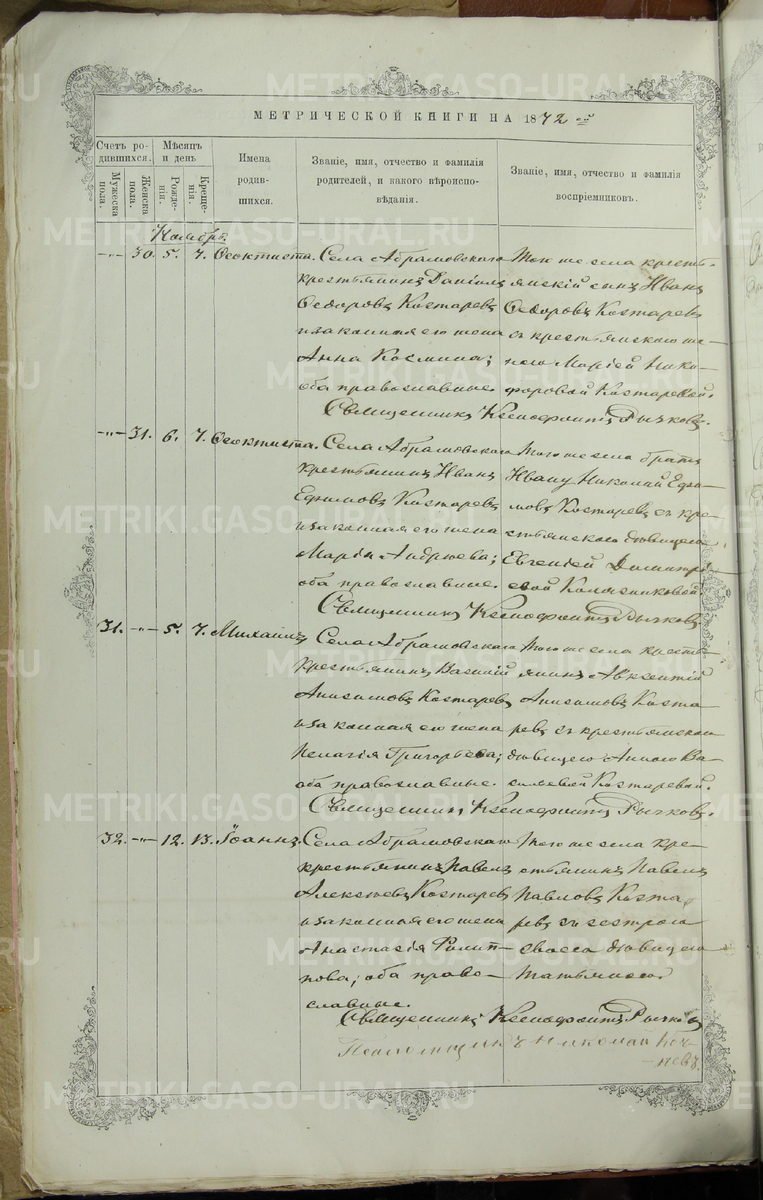 МЕТРИЧЕСКОЙ КНИГИ НА 1872 ой
Счетъ родившихся.
Мужеска пола.
Женска пола.
Мѣсяцъ и день
Рожденія.
Крещенія.
Имена родившихся.
Званіе, имя, отчество и фамилія родителей, и какого вѣроисповѣданія.
Званіе, имя, отчество и фамилія воспріемниковъ.
Ноябрь.
-"- 30. 5. 7. Ѳеоктиста.
Села Абрамовскаго
крестьянинъ Даніилъ
Ѳедоровъ Костаревъ
и законная его жена
Анна Космина;
оба православные.
Того же села кресть-
янскій сынъ Иванъ
Ѳедоровъ Костаревъ
съ крестьянскою же-
ною Маріей Ники-
форовой Костаревой.
Священникъ Ксенофонтъ Рычковъ.
-"- 31. 6. 7. Ѳеоктиста.
Села Абрамовскаго
крестьянинъ Иванъ
Ефимовъ Костаревъ
и законная его жена
Марія Андреева;
оба православные.
Того же села братъ
Ивану Николай Ефи-
мовъ Костаревъ съ кре-
стьянскою дѣвицею
Евгеніей Димитрі-
евой Колясниковой
Священникъ Ксенофонтъ Рычковъ
31. -"- 5. 7. Михаилъ
Села Абрамовскаго
крестьянинъ Василій
Анисимовъ Костаревъ
и законная его жена
Пелагія Григорьева;
оба православные.
Того же села кресть-
янинъ Авксентій
Анисимовъ Коста-
ревъ съ крестьянскою
дѣвицею Анною Ва-
сильевой Костаревой.
Священникъ Ксенофонтъ Рычковъ.
32. -"- 12. 13. Іоаннъ.
Села Абрамовскаго
крестьянинъ Павелъ
Алексѣевъ Костаревъ
и законная его жена
Анастасія Филип-
пова; оба право-
славные.
Того же села кре-
стьянинъ Павелъ
Павловъ Коста-
ревъ съ сестрою
своею дѣвицею
Татьяною
Священникъ Ксенофонтъ Рычковъ
Псаломщикъ Николай
METRIKI.GASO-URAL.RU